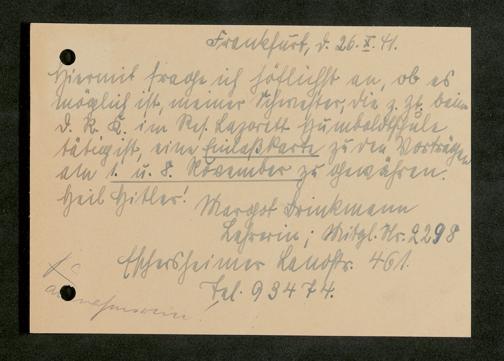 Frankfurt, d. 26. X. 41.
Hiermit frage ich höflichst an, ob es
möglich ist, meiner Schwester, die z. Zt. beim
D. R. K. im Res. Lazarett Humboldtschule
tätig ist, eine Einlaßkarte zu den Vorträgen
am 1. u. 8. November zu gewähren.
Heil Hitler!
Margot Brinkmann
Lehrerin; Mitgl. Nr. 2298
Eschersheimer Landstr. 461.
Tel. 93474.